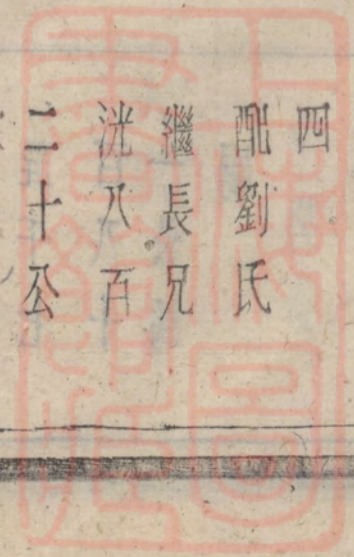 四
配劉氏
繼長兄
洸八百
二十公